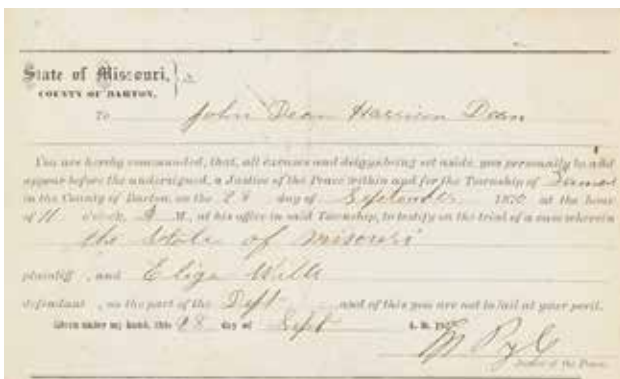 State of Missouri,
COUNTY OF BARTON.
To John Dean Harrison Dean
You are hereby commanded, that, all excuses and delays being set aside, you personally be and
appear before the undersigned, a Justice of the Peace within and for the Township of
in the County of Barton, on the 28 day of September 1870 at the hour
of 11 o'clock, A M., at his office in said Township, to testify on the trial of a cause wherein
the State of Misouri
plaintiff , and Elige Wells
defendant , on the part of the Deft and of this you are not to fail at your peril.
Given under my hand, this 28 day of Sept A. D. 187
Justice of the Peace.